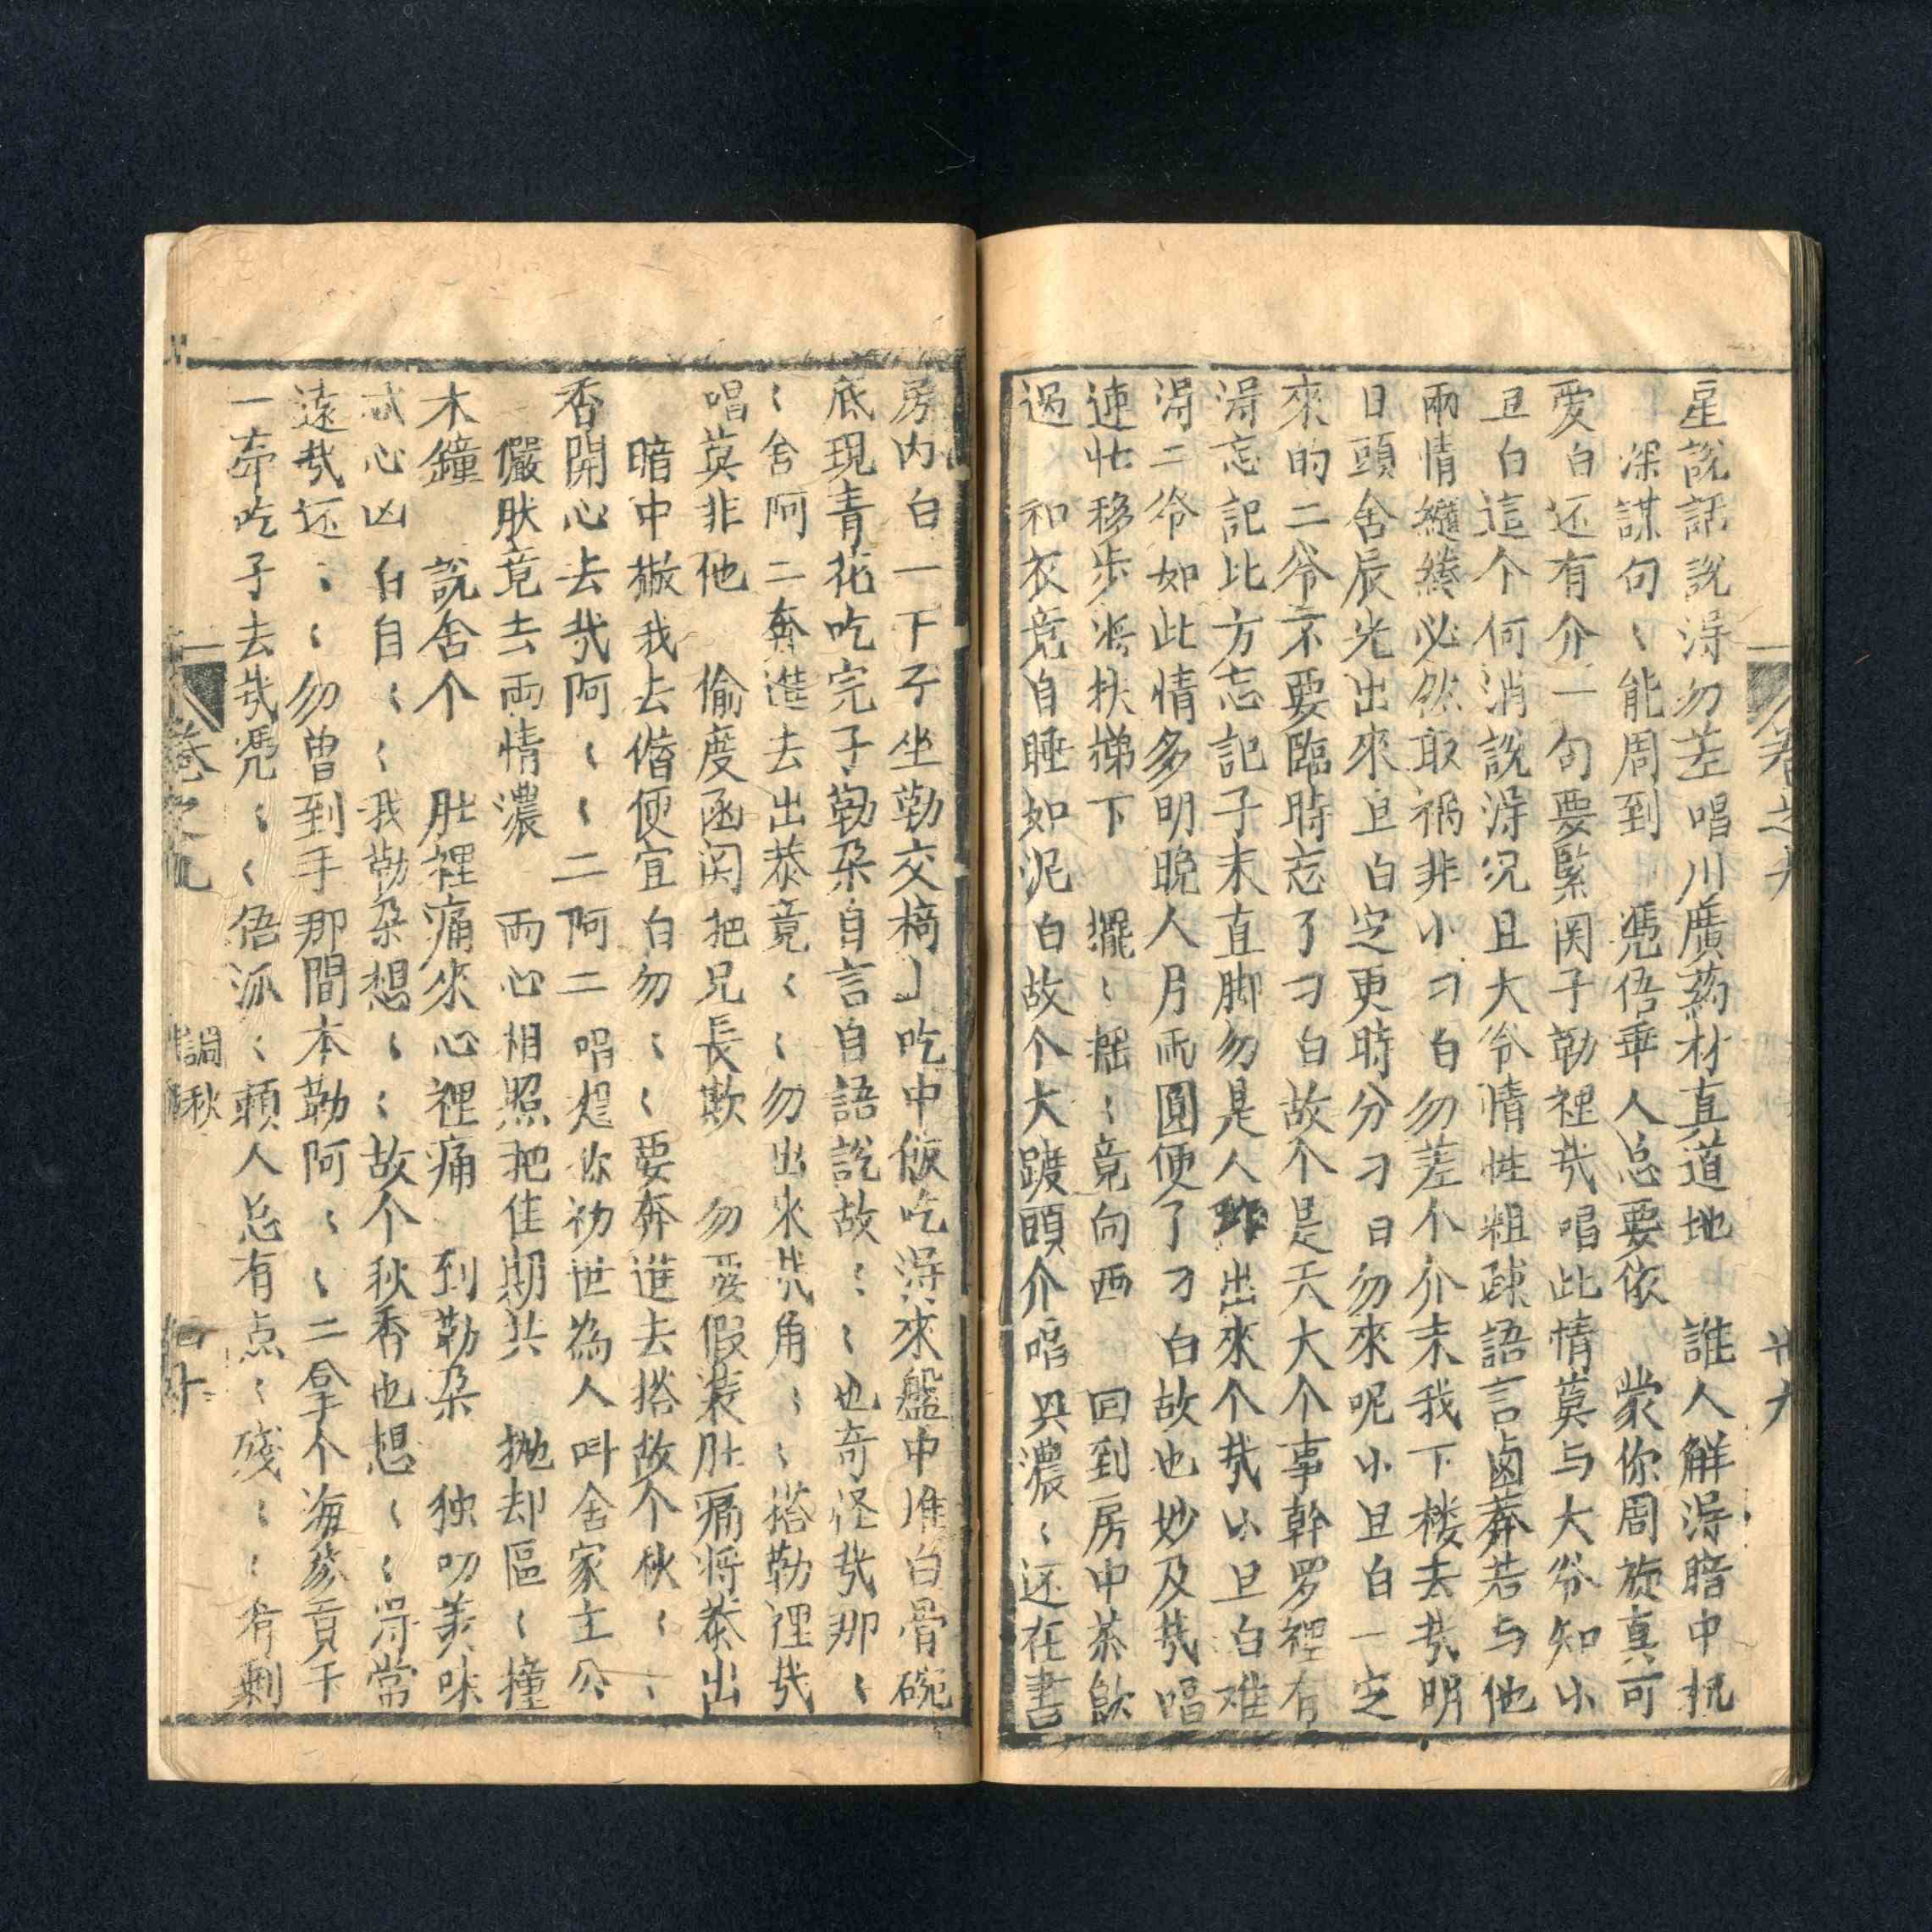 星說話說淂勿差唱川廣药材真道地 誰人解淂暗中机
深謀句〻能周到 凴俉乖人总要依 蒙你周旋真可
爱白还有介一句要緊関子勒裡㢤唱此情莫与大爷知小
旦白這个何消說淂况且大爷情性粗踈語言鹵莽若与他
兩情繾綣必然取禍非小刁白勿差个介末我下楼去㢤明
日頭舍辰光出來旦白定更時分刁白勿來呢小旦白一定
來的二爷不要臨時忘了刁白故个是天大个事幹罗裡有
淂忘記比方忘記子末直脚勿是人 出來个㢤小旦白难
淂二爷如此情多明晚人月兩圓便了刁白故也妙及㢤唱
連忙移步将扶梯下 擺〻摇〻竟向西 回到房中茶飲
過 和衣竟自睡如泥白故个大踱頭介唱興濃〻还在書
卷之九 廿九
房内白一下子坐勒交椅上吃中飯吃淂來盤中堆白骨碗
底現青花吃完子勒朶自言自語說故〻〻也奇怪㢤那〻
〻舍阿二奔進去出恭竟〻〻勿出來㢤角〻〻搭勒裡㢤
唱莫非他 偷度函関把兄長欺 勿要假装肚痛将恭出
暗中撇我去偺便宜白勿〻〻要奔進去搭故个秋〻〻
香開心去㢤阿〻〻二阿二唱趕你初世為人叫舍家主公
儼肤竟去兩情濃 兩心相照把佳期共 抛却區〻撞
木鐘 說舍个 肚裡痛來心裡痛 到勒朶 独叨美味
忒心凶白自〻〻我勒朶想〻〻故个秋香也想〻〻淂常
遠㢤还〻〻勿曾到手那間本勒阿〻〻二拿个海蔘貢干
一夲吃子去㢤凴〻〻俉派〻頼人总有点〻殘〻〻有剩
卷之九 調秋